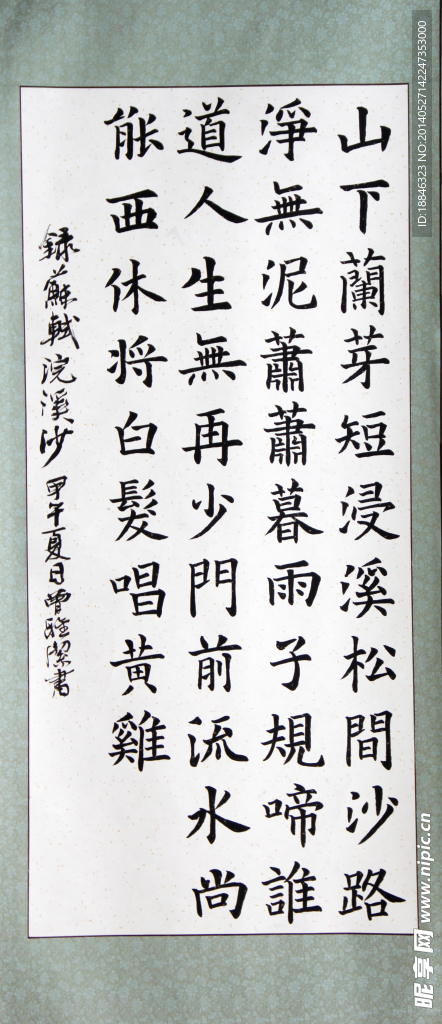 山下蘭芽短浸溪松間沙路
淨無泥蕭蕭暮雨子規啼誰
道人生無再少門前流水尚
能西休將白髮唱黃雞
録蘇軾浣溪沙 甲午夏日曾
潔書
NO:20140527142247353000
ID:18846323
昵享网 www.nipic.cn